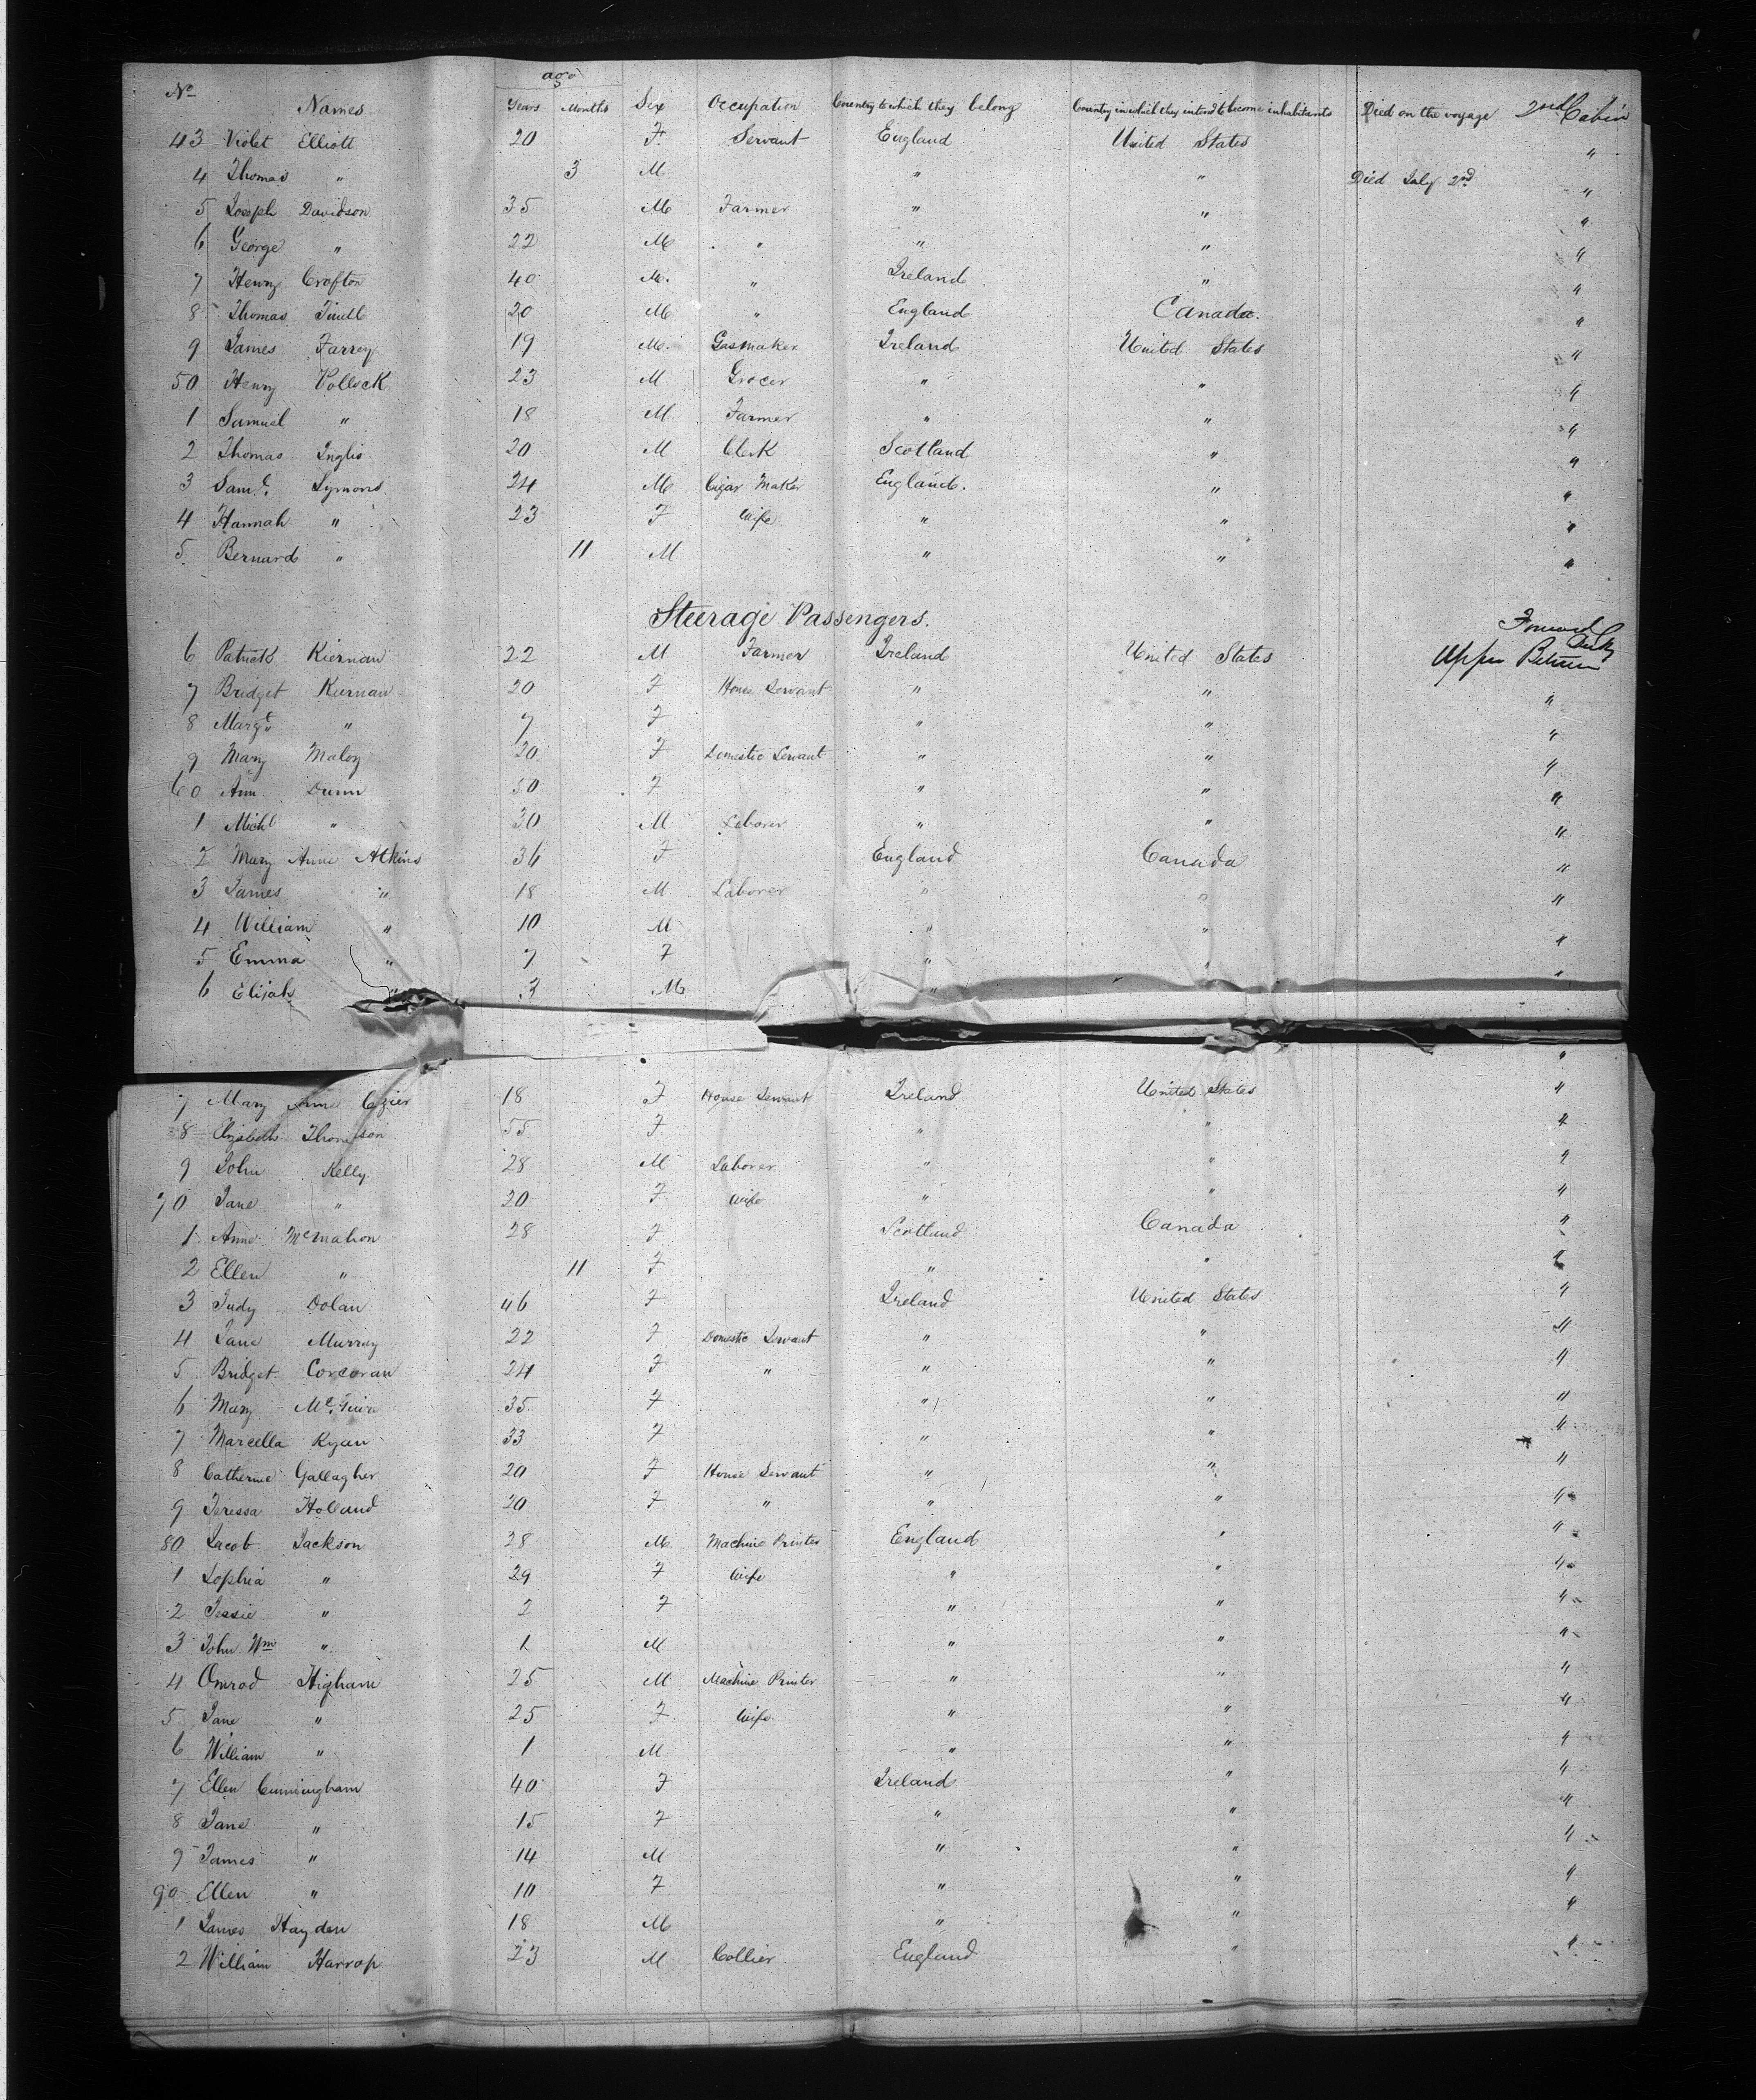 age
No Names Years Months Sex Occupation Country to which they belong Country in which they intend to become inhabitants Died on the voyage 2nd Cabin
43 Violet Elliott 20 F. Servant England United States "
4 Thomas " 3 M " " Died July 2nd "
5 Joseph Davidson 35 M Farmer " " "
6 George " 22 M " " " "
7 Henry Crofton 40 M. " Ireland " "
8 Thomas 20 M " England Canada. "
9 James Farrey 19 M. Gasmaker Ireland United States "
50 Henry Pollock 23 M Grocer " " "
1 Samuel " 18 M Farmer " " "
2 Thomas Inglis 20 M Clerk Scotland " "
3 Saml. Symons 24 M Cigar Maker England. " "
4 Hannah " 23 F Wife " " "
5 Bernard " 11 M " " "
Steerage Passengers.
Forward
6 Patrick Kiernan 22 M Farmer Ireland United States Upper Between Decks
7 Bridget Kiernan 20 F House Servant " " "
8 Margt " 7 F " " "
9 Mary Maloy 20 F Domestic Servant " " "
60 Ann Dunn 50 F " " "
1 Michl " 30 M Laborer " " "
2 Mary Anne Atkins 36 F England Canada "
3 James " 18 M Laborer " " "
4 William " 10 M " " "
5 Emma " 7 F " " "
6 Elijah " 3 M " "
"
7 Mary Anne Cozier 18 F House Servant Ireland United States "
8 Elizabeth Thompson 55 F " " "
9 John Kelly 28 M Laborer " " "
70 Jane " 20 F Wife " " "
1 Anne McMahon 28 F Scotland Canada "
2 Ellen " 11 F " " "
3 Judy Dolan 46 F Ireland United States "
4 Jane Murray 22 F Domestic Servant " " "
5 Bridget Corcoran 24 F " " " "
6 Mary McGuire 35 F " " "
7 Marcella Ryan 33 F " " "
8 Catherine Gallagher 20 F House Servant " " "
9 Teressa Holland 20 F " " " "
80 Jacob Jackson 28 M Machine Printer England " "
1 Sophia " 29 F Wife " " "
2 Jessie " 2 F " " "
3 John Wm " 1 M " " "
4 Omrod Higham 25 M Machine Printer " " "
5 Jane " 25 F Wife " " "
6 William " 1 M " " "
7 Ellen Cunningham 40 F Ireland " "
8 Jane " 15 F " " "
9 James " 14 M " " "
90 Ellen " 10 F " " "
1 James Hayden 18 M " " "
2 William Harrop 23 M Collier England " "